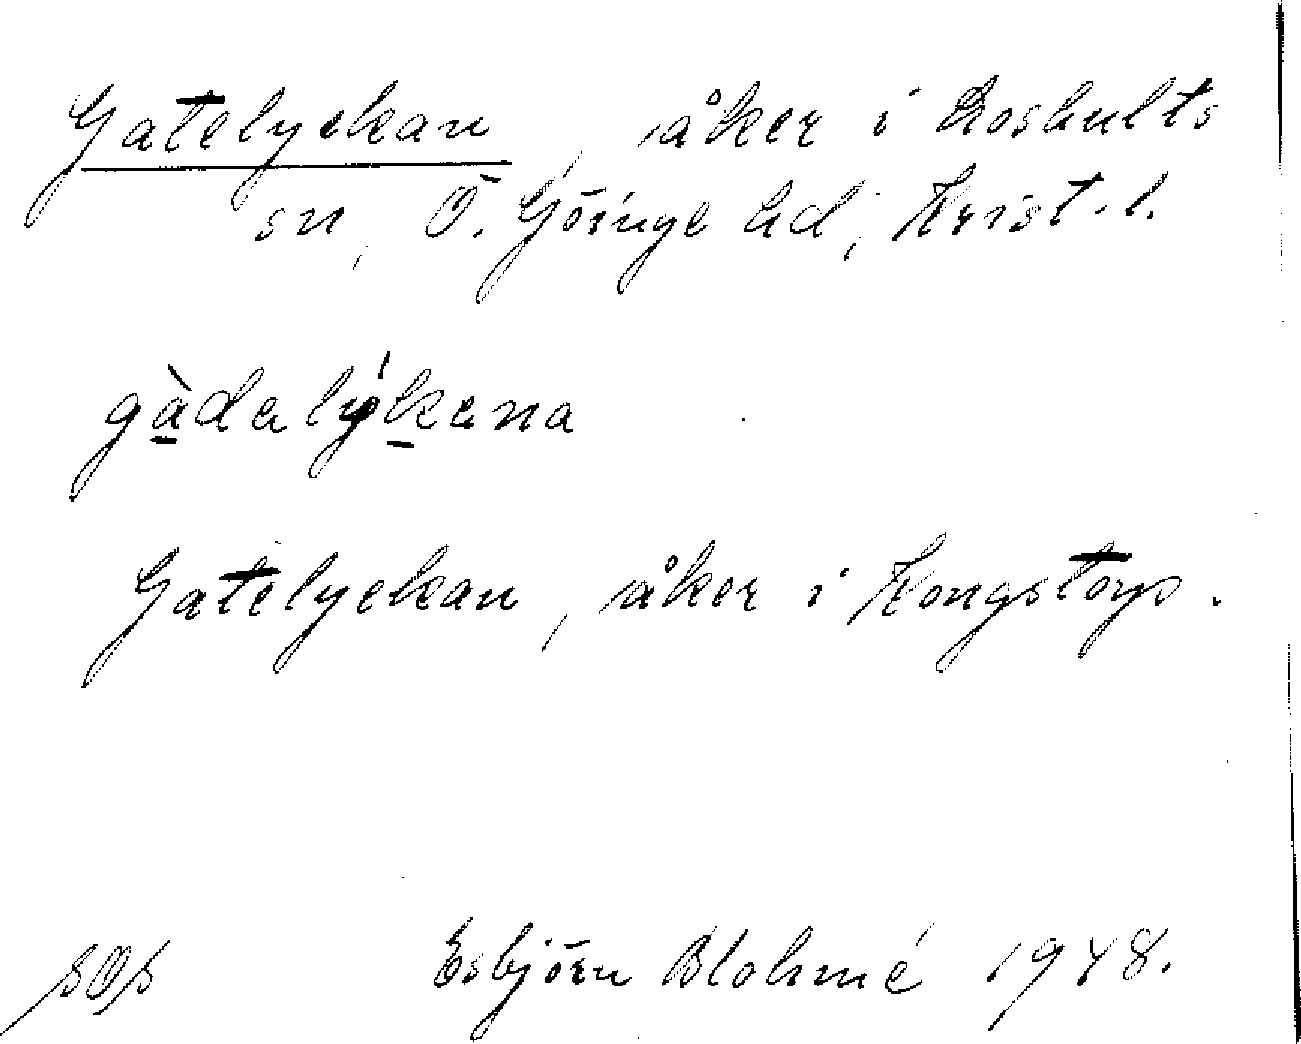 Gatelyckan, åker i Loshults
sn, Ö. Göinge hd, Krist. l.
gàdalýkana
Gatelyckan, åker i Kongstorp.
SOS Esbjörn Blohmé 1948.